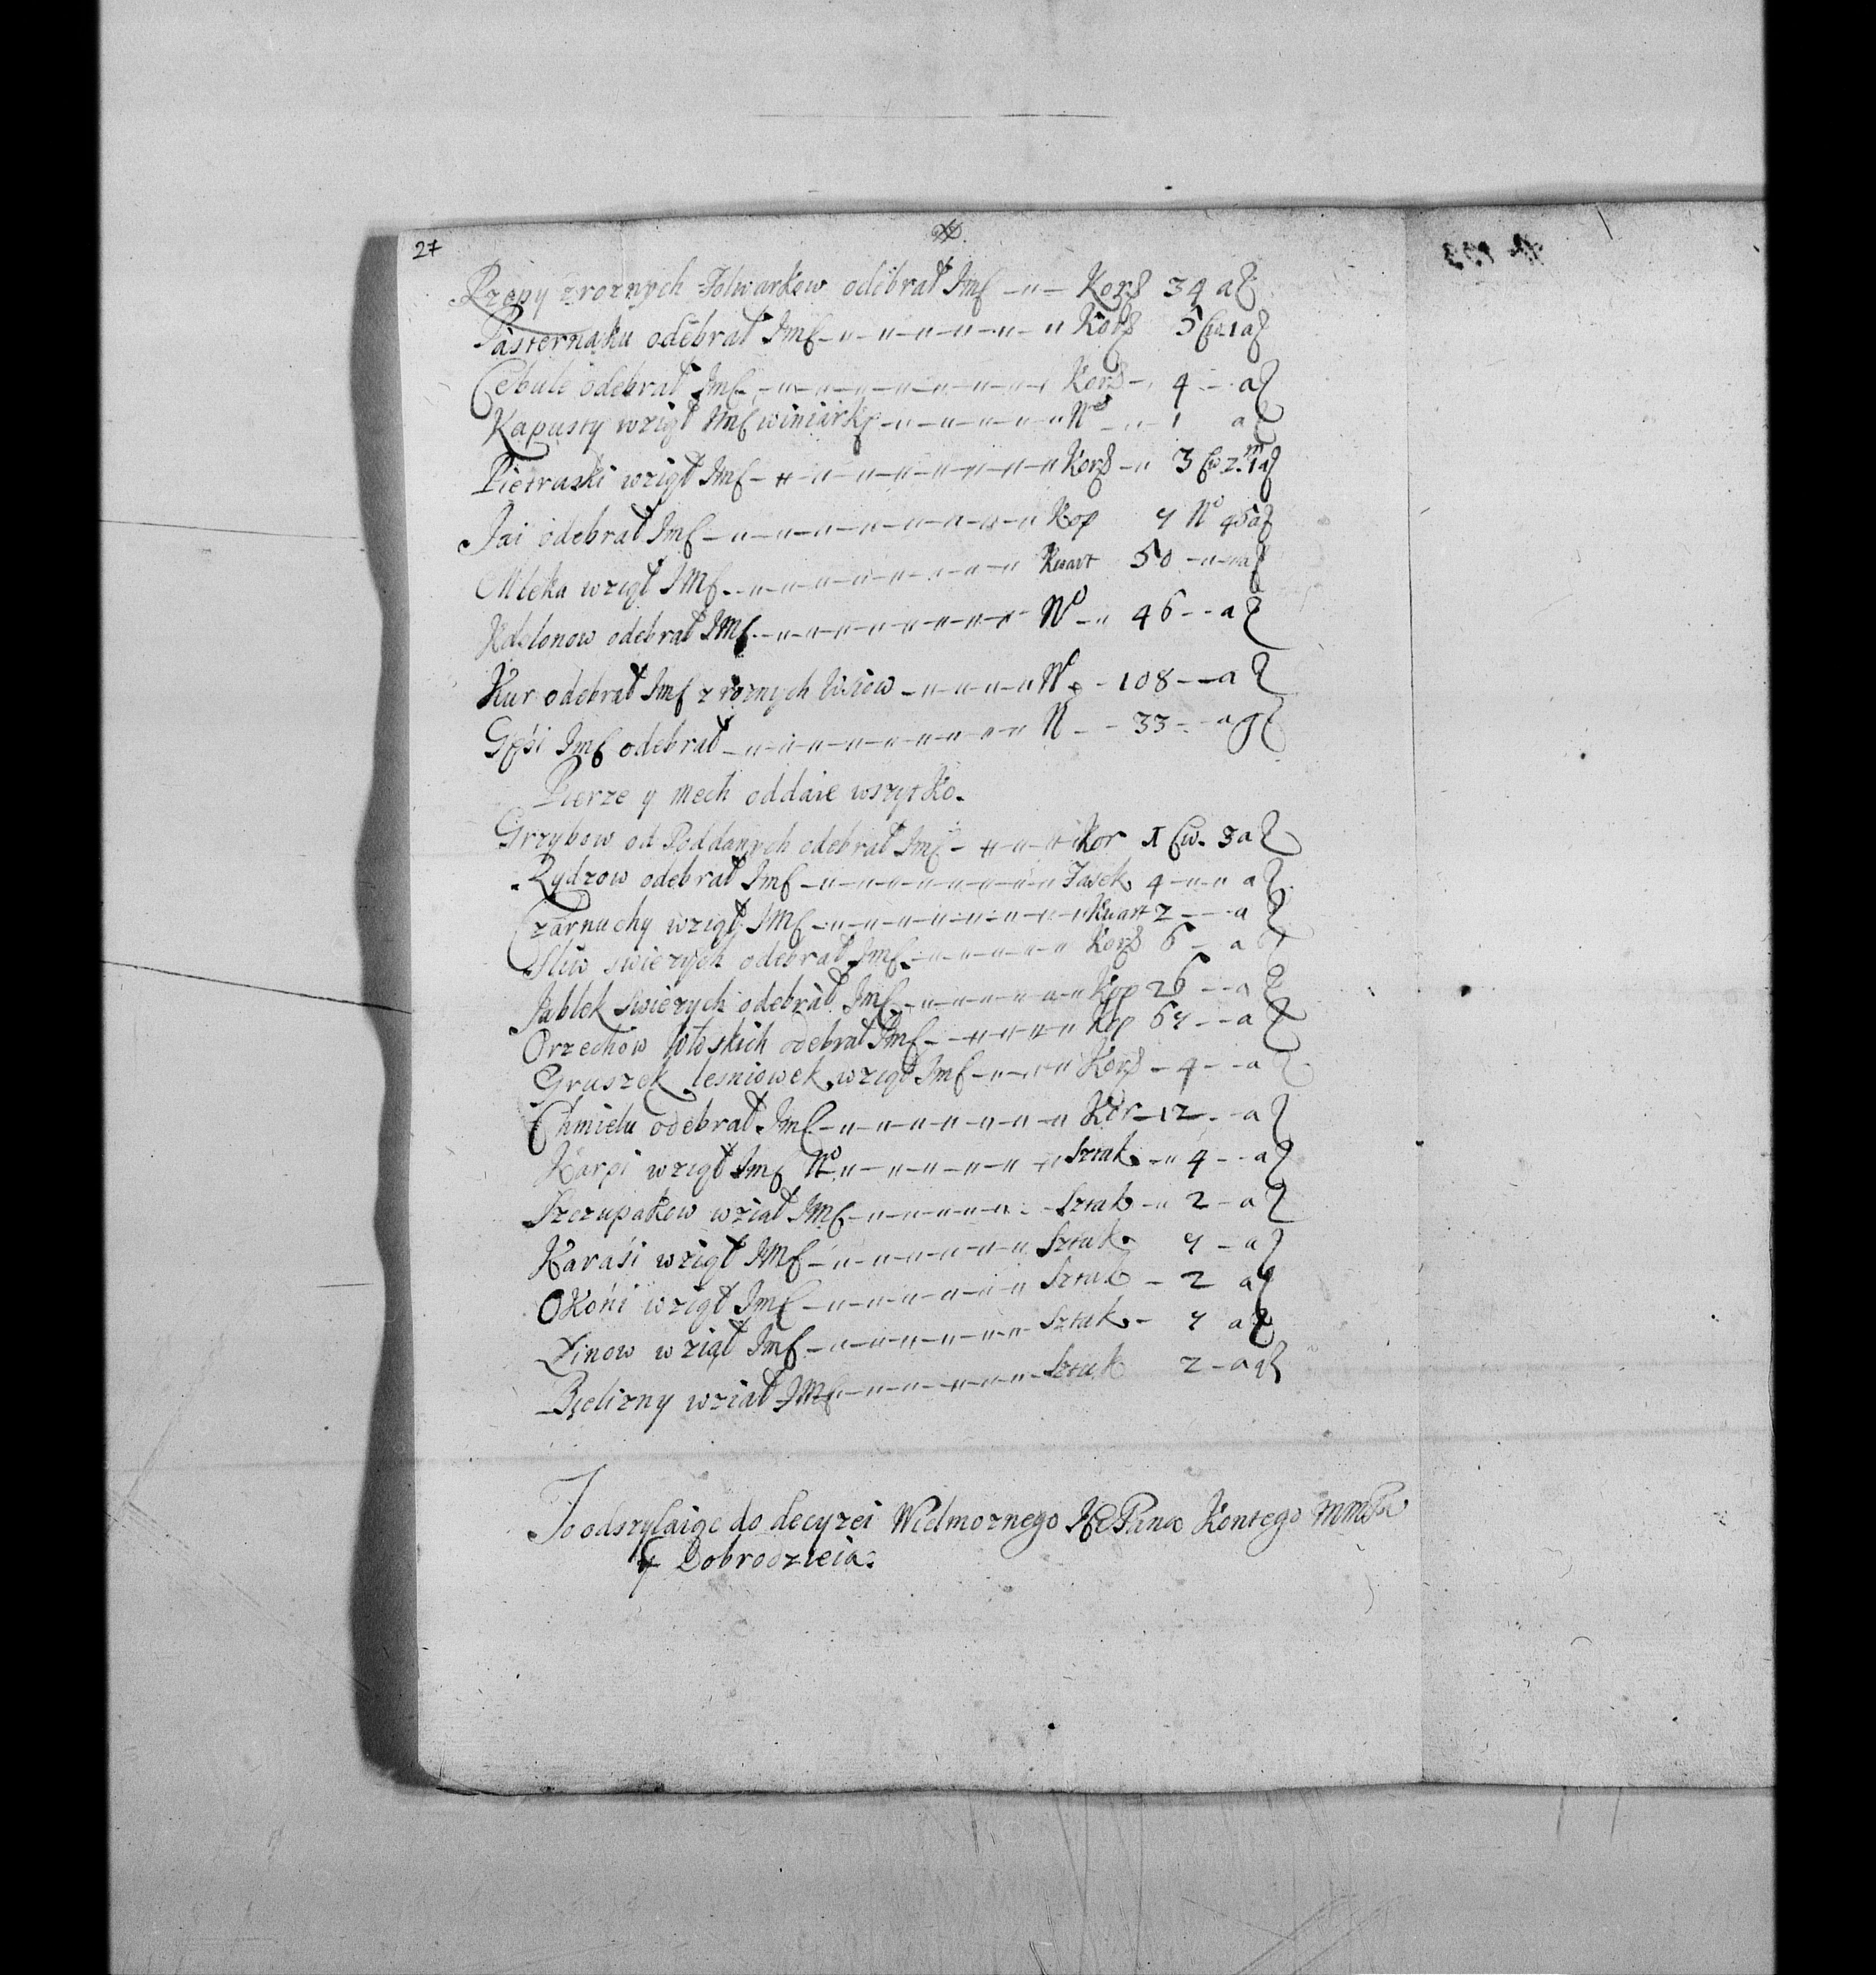 27
Rzepy z roznych Folwarkow odebrał Jmć Kor 34 a
Pasternaku odebrał Jmć Kor 5 Ćw. 1 a
Cebule odebrał Jmć Kor 4 a
Kapusty wziął Jmć N° 1 a
Pietruszki wziął Jmć Kor 3 Ćw 2 a
Jai odebrał Jmć Kop 7 N° 45 a
Mleka wziął JMć Kwart 50 a
Kapłonow odebrał JMć N° 46 a
Kur odebrał Jmć z roznych Wsiow N° 108 a
Gęśi Jmć odebrał N 33 a
Pierze y mech oddaie wszytko.
Grzybow od Poddanych odebrał Jmć Kor 1 Ćw. 3 a
Rydzow odebrał Jmć Fasek 4 a
Czarnuchy wziął JMć Kwart 2 a
Sliw swiezych odebrał Jmć Kor 6 a
Jablek swiezych odebrał Jmć Kop 26 a
Orzechow Włoskich odebrał Jmć Kop 67 a
Gruszek lesniowek wziął Jmć Kor 4 a
Chmielu odebrał Jmć Kor 12 a
Karpi wziął Jmć N° Sztuk 4 a
Szczupakow wziął JMć Sztuk 2 a
Karaśi wziął JMć Sztuk 7 a
Okońi wziął Jmć Sztuk 2 a
Linow wziął Jmć Sztuk 7 a
Bielizny wziął JMć Sztuk 2 a
To odszylaiąc do decyzei Wielmoznego Pana
y Dobrodzieia.